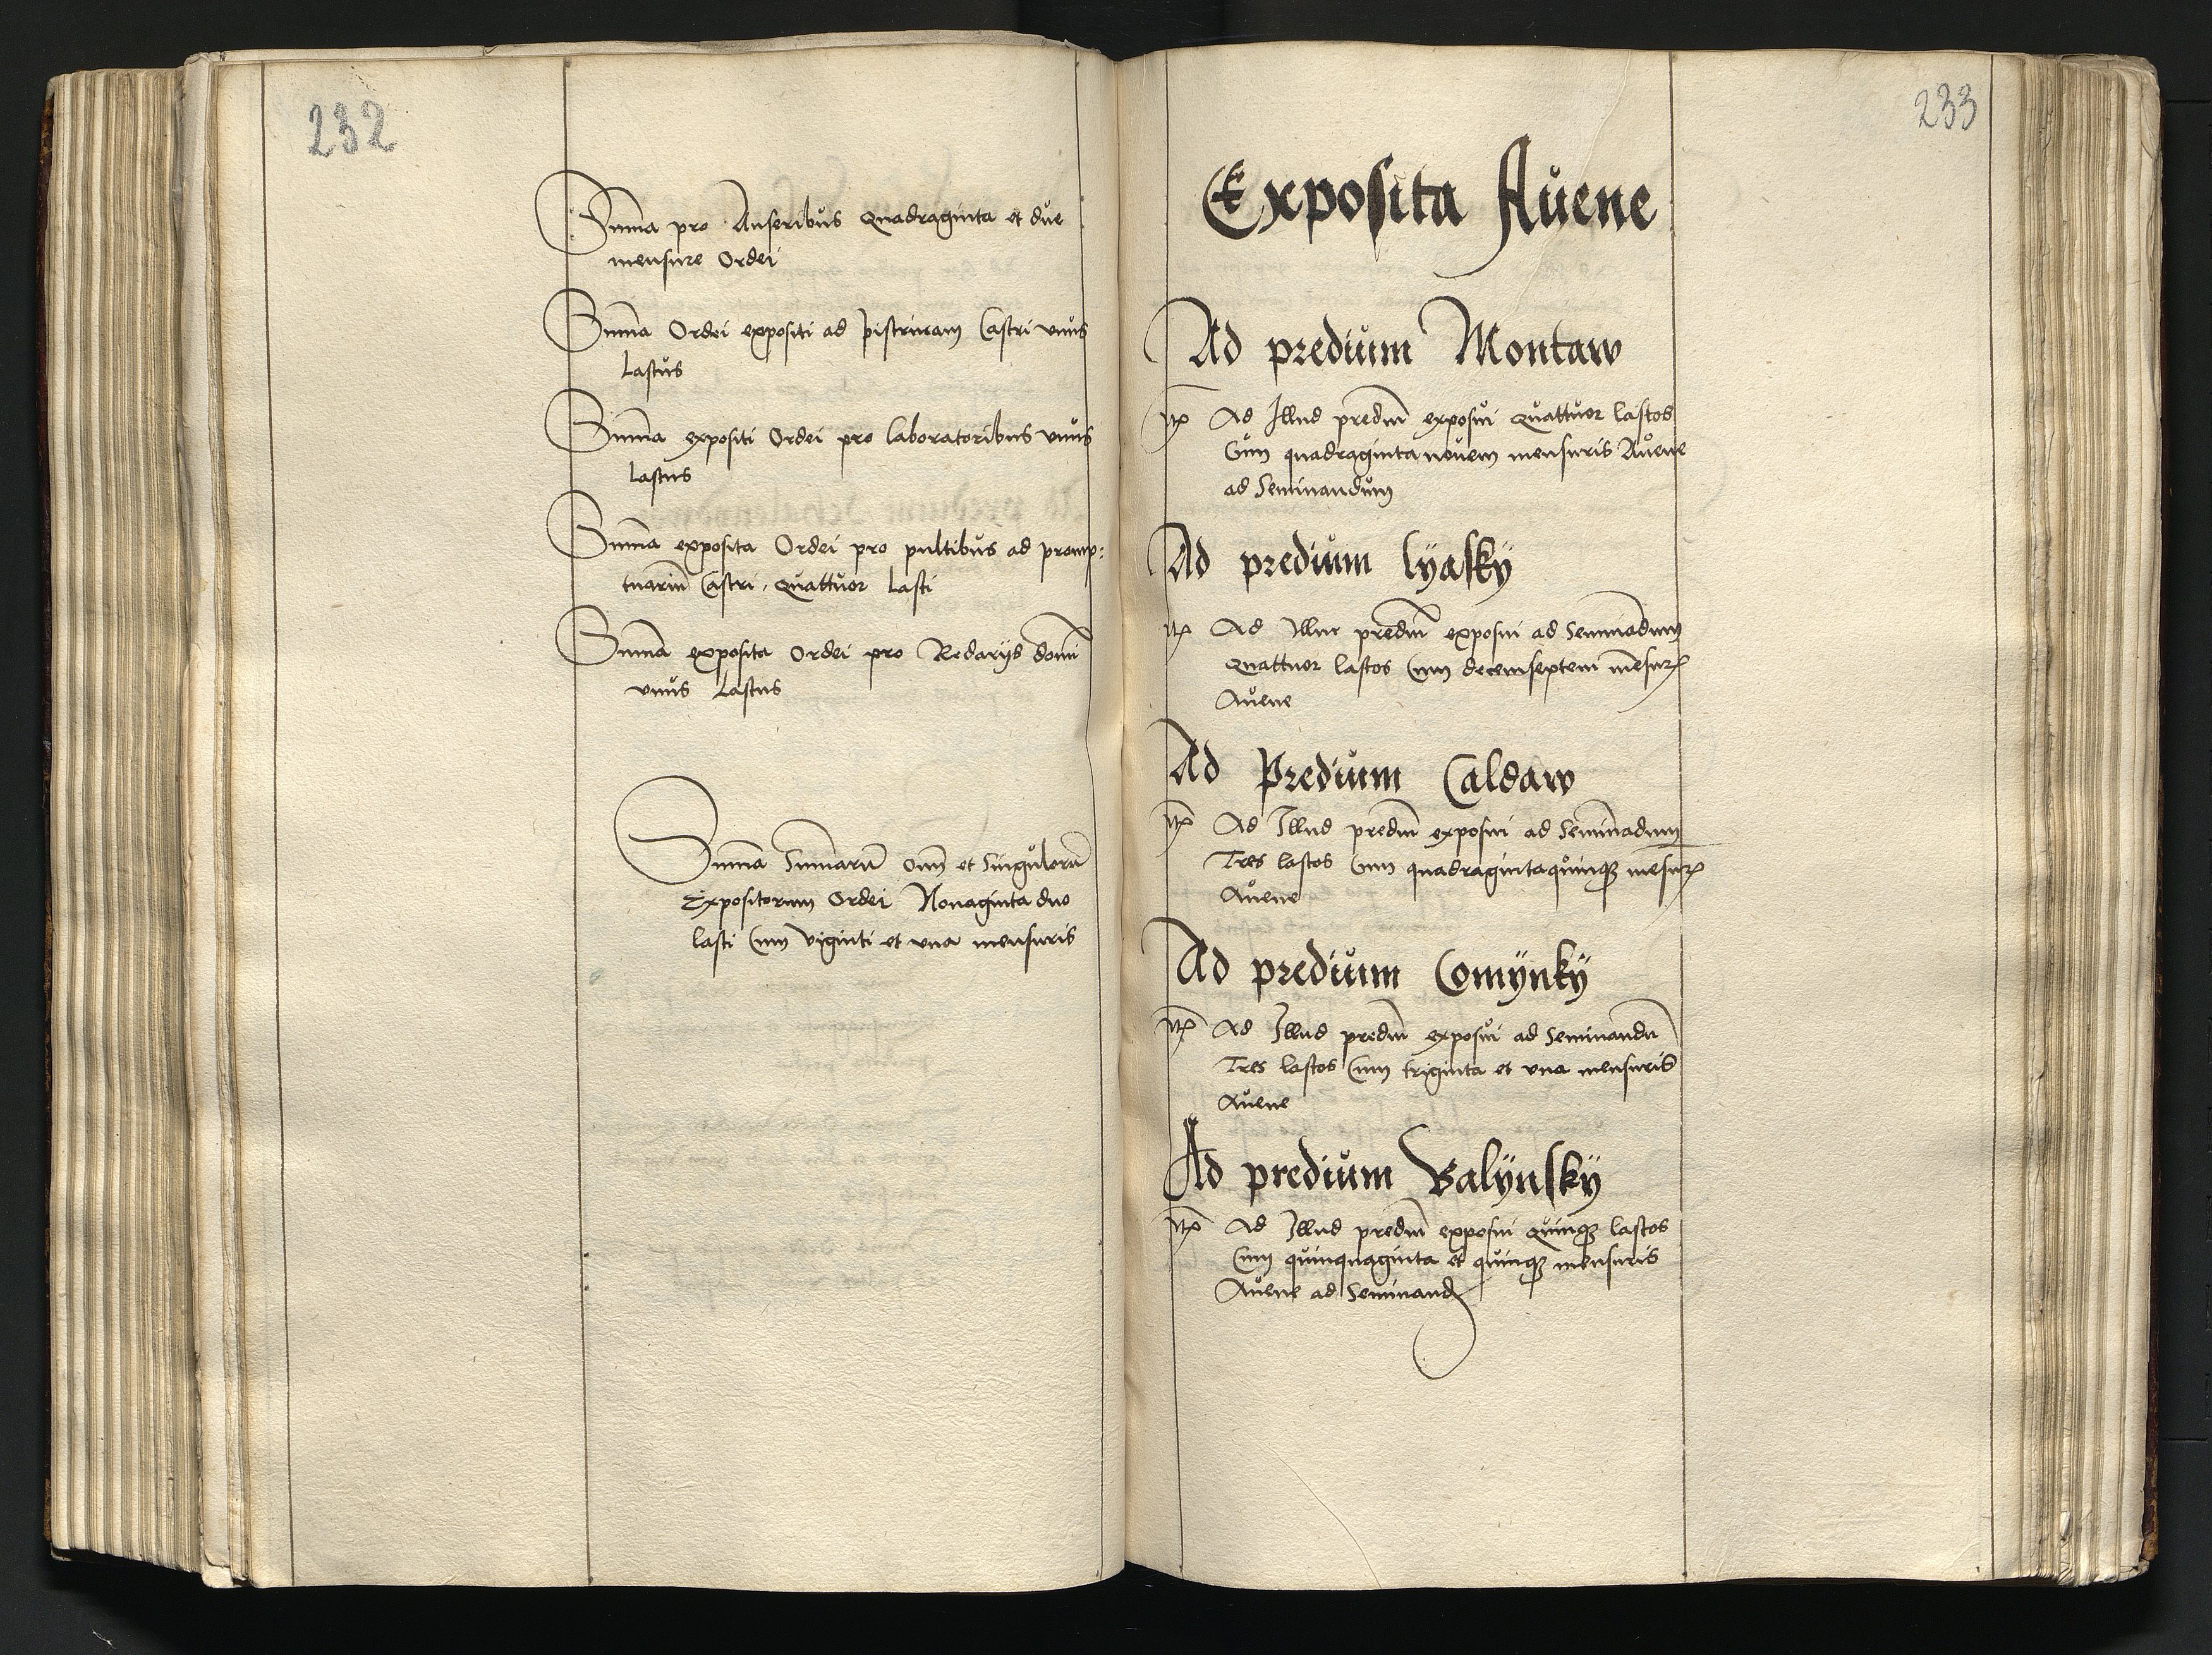 232
Summa pro Anseribus Quadraginta et due
mensure Ordei
Summa Ordei expositi ad pistrinam Castri vnus
Lastus
Summa expositi Ordei pro laboratoribus vnus
Lastus
Summa exposita Ordei pro pultibus ad promp:
tuariũ Castri, Quattuor Lasti
Summa exposita Ordei pro Redarijs domi
vnus Lastus
Summa Summarũ om̃ et Singulorũ
Expositorum Ordei Nonaginta duo
lasti Cum viginti et vna mensuris
233
Exposita Auene
Ad predium Montaw
Itẽ Ad Illud prediũ exposui Quattuor lastos
Cum quadragintanouem mensuris Auene
ad Seminandum
Ad predium lÿaskÿ
Itẽ Ad Illud prediũ exposui ad Seminãdum
Quattuor lastos Cum decemseptem mẽsurꝭ
Auene
Ad Predium Caldaw
Itẽ Ad Illud prediũ exposui ad Seminãdum
Tres lastos Cum quadragintaquinqꝫ mẽsurꝭ
Auene
Ad predium Comÿnkÿ
Itẽ Ad Illud prediũ exposui ad Seminandũ
Tres lastos Cum triginta et vna mensuris
Auene
Ad predium Balÿnskÿ
Itẽ Ad Illud prediũ exposui quinqꝫ lastos
Cum quinquaginta et quinqꝫ mensuris
Auene ad Seminand